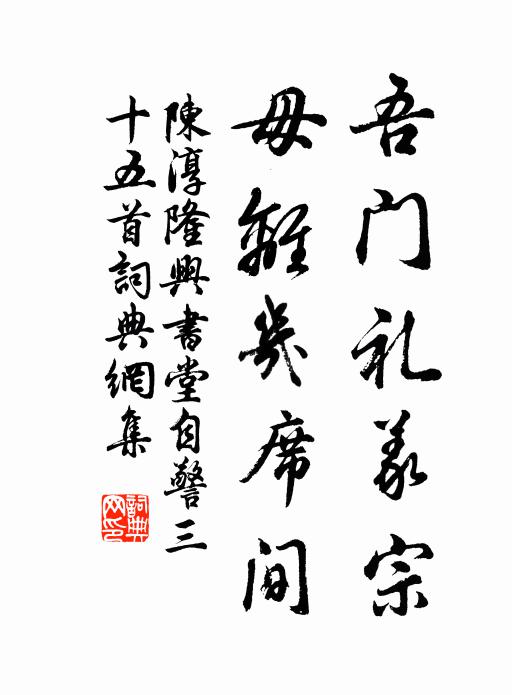 吾门礼义宗
毋離几席间
陳淳隆興書堂自警三
十五首詞典網集
詞典网印